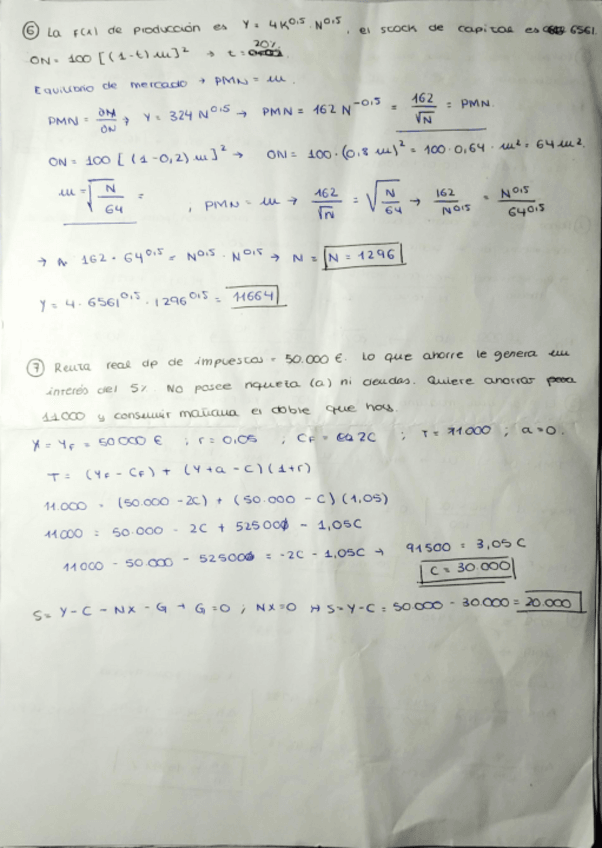 ⑥ La f(x) de producción es Y = 4K^0,5 · N^0,5, el stock de capital es 6561.
ON = 100 [(1-t) w]² → t = 20%
Equilibrio de mercado → PMN = w.
PMN = ∂N/∂N → Y = 324 N^0,5 → PMN = 162 N^-0,5 = 162/√N = PMN.
ON = 100 [(1-0,2) w]² → ON = 100 · (0,8 w)² = 100 · 0,64 · w² = 64 w².
w = √(N/64) = , PMN = w → 162/√N = √(N/64) → 162/N^0,5 = N^0,5/64^0,5
→ 162 · 64^0,5 = N^0,5 · N^0,5 → N = N = 1296
Y = 4 · 6561^0,5 · 1296^0,5 = 11664
⑦ Renta real dp de impuestos = 50.000 €. Lo que ahorre le genera un
interés del 5%. No posee riqueza (a) ni deudas. Quiere ahorrar para
11000 y consumir mañana el doble que hoy.
Y = Y_F = 50000 € ; r = 0,05 ; C_F = 2C ; T = 11000 ; a = 0.
T = (Y_F - C_F) + (Y + a - C)(1+r)
11.000 = (50.000 - 2C) + (50.000 - C)(1,05)
11000 = 50.000 - 2C + 52500 - 1,05C
11000 - 50.000 - 52500 = -2C - 1,05C → 91500 = 3,05C
C = 30.000
S = Y - C - NX - G → G = 0 ; NX = 0 → S = Y - C = 50.000 - 30.000 = 20.000